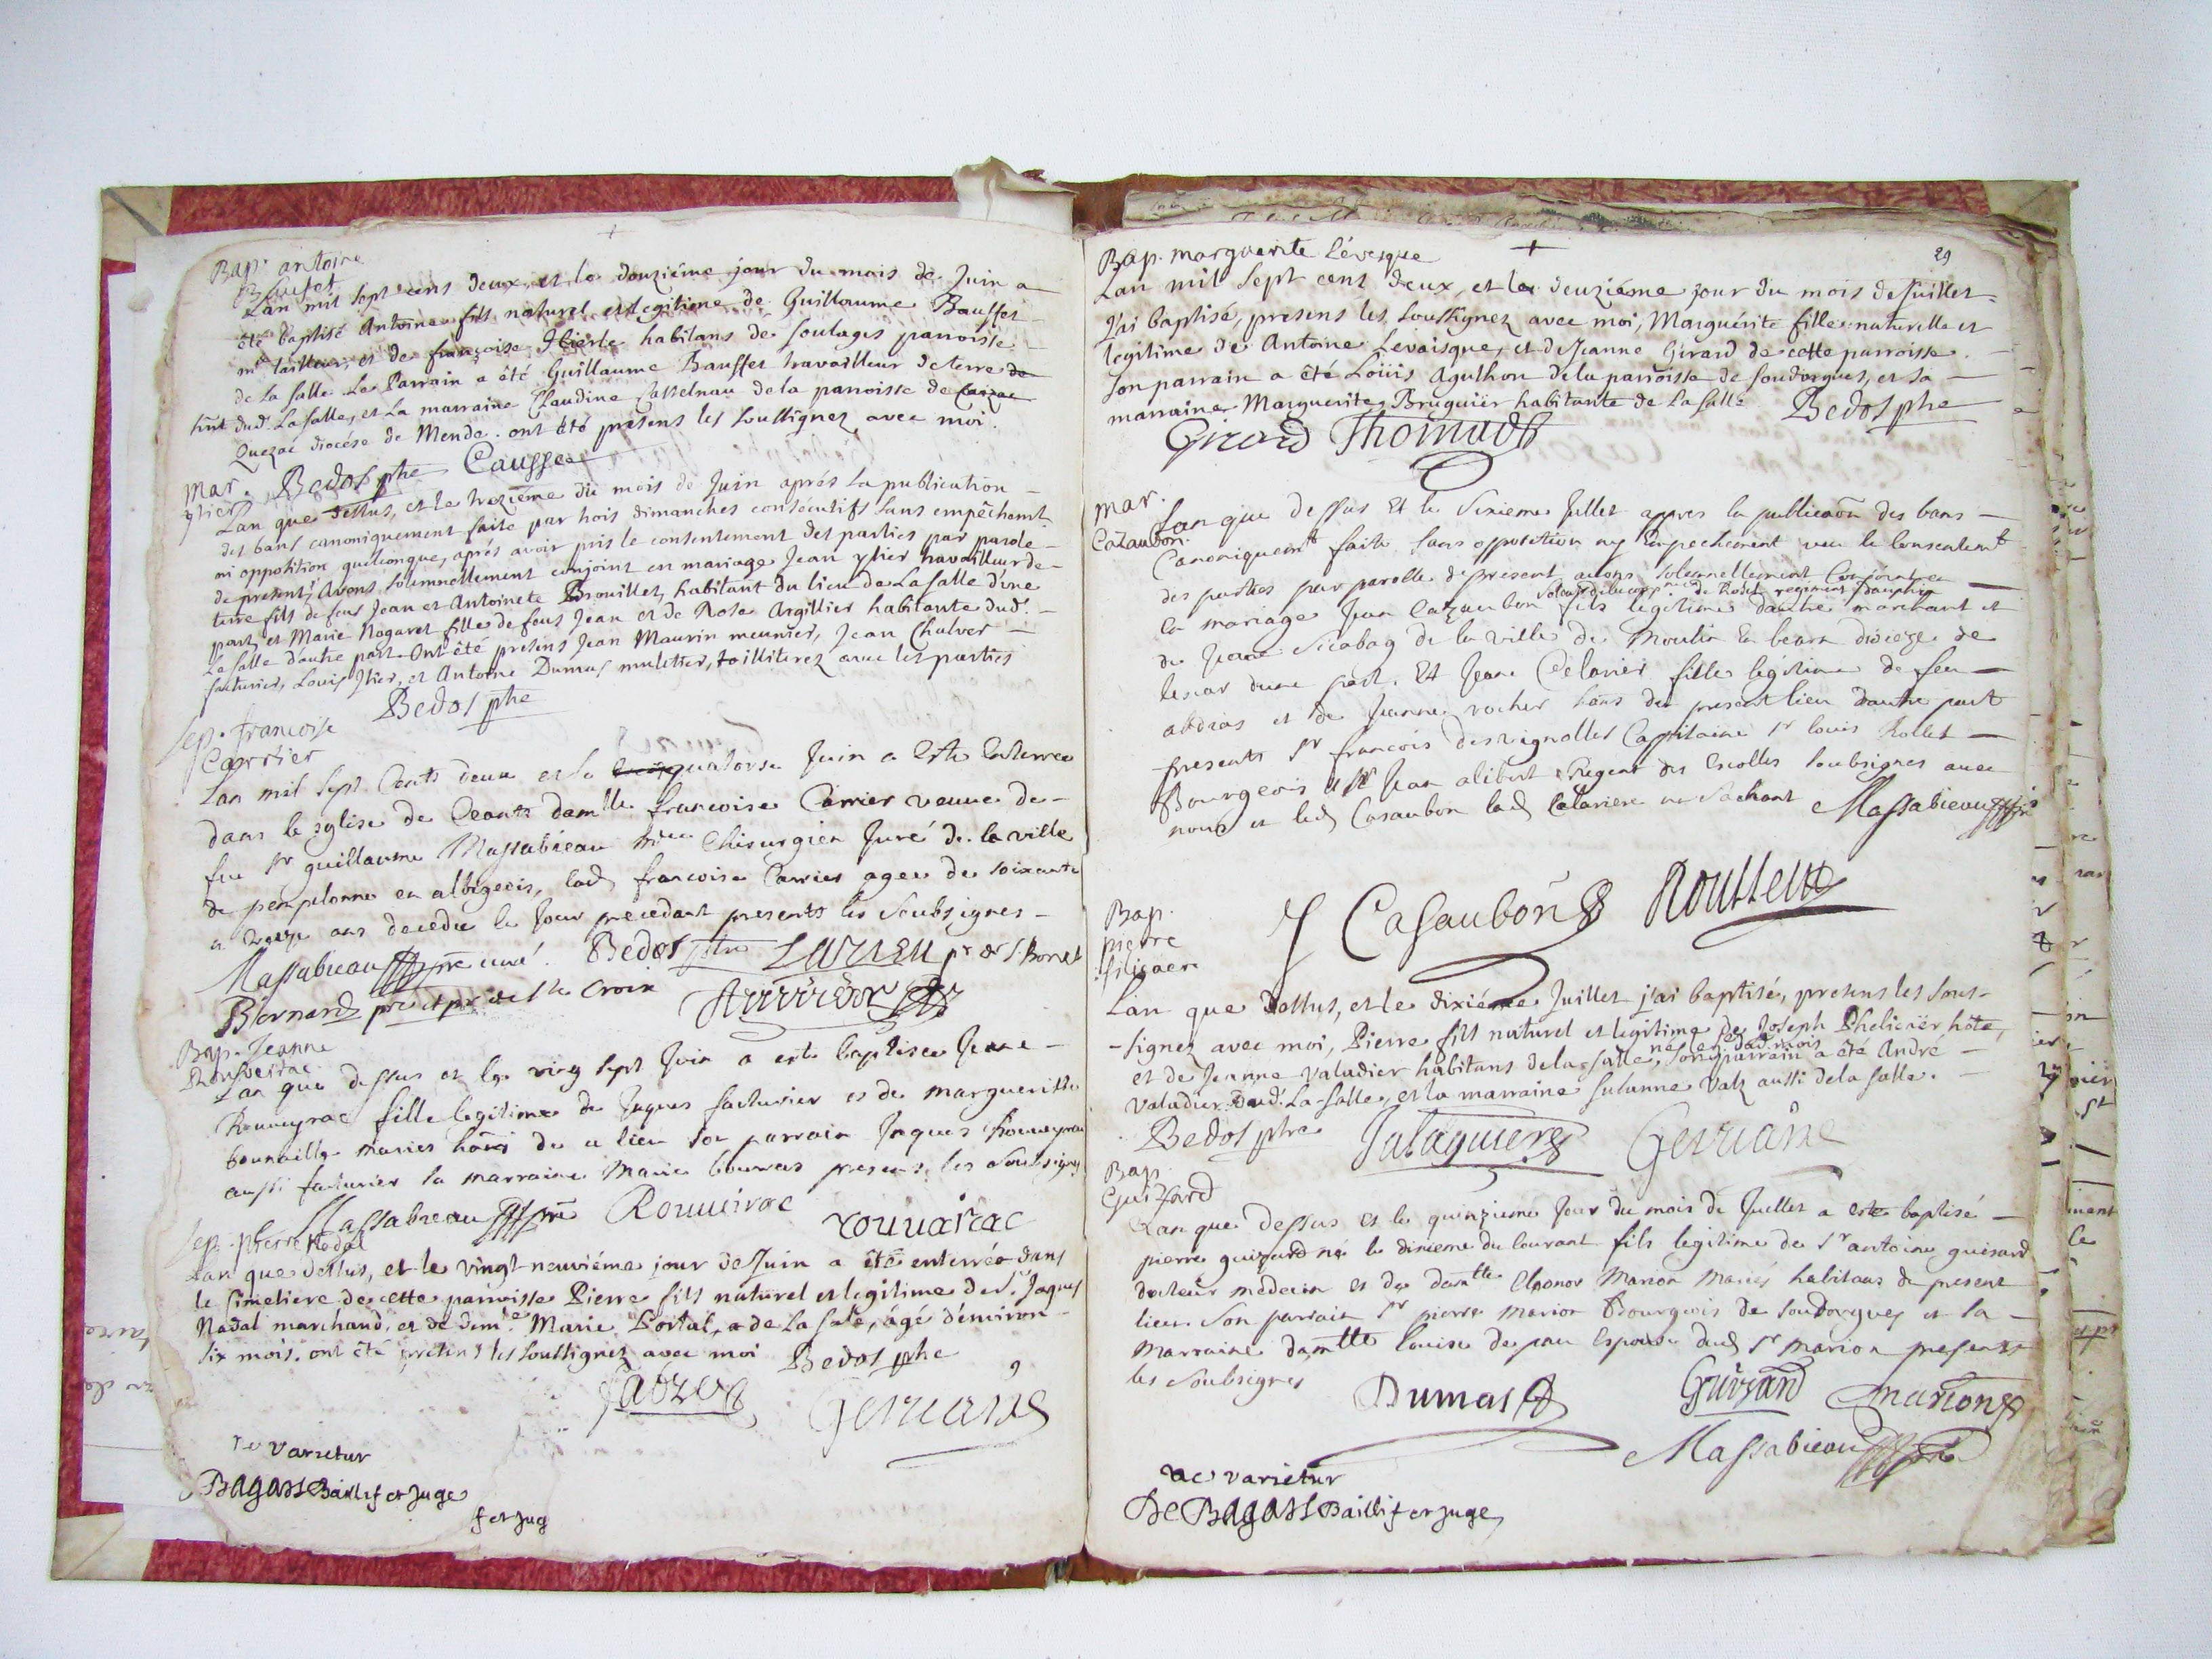 Bap. antoine
Bauset
Lan mil sept cens deux, et le douziéme jour du mois de Juin a
été baptisé Antoine fils naturel et legitime de Guillaume Bausset
mr tailleur, et de françoise habitans de soulages parroisse
de La salle. Le Parrain a été Guillaume Bausset travailleur de terre de
hñt dud. La salle, et La marraine Claudine Casselnau de la parroisse de
Quezac diocése de Mende. ont été présens les soussignez avec moi.
Bedos ptre Causse
mar.
ylier
Lan que dessus, et le trezième du mois de Juin aprés La publication
des bans canoniquement faite par trois dimanches consécutifs sans empêchemt
ni opposition quelconque, aprés avoir pris le consentement des parties par parole
de present, Avons solemnellement conjoint en mariage Jean ylier travailleur de
terre fils de feus Jean et Antoinete Brouillet, habitant du lieu de La salle d'une
part, et Marie Nogaret fille de feus Jean et de Rose Argillier habitante dud.
La salle d'autre part. Ont été presens Jean Maurin meunier, Jean Chalver
facturier, Louis Ilier, et Antoine Dumas muletier, avec les parties
Bedos ptre
sep. francoise
Carrier
Lan mil sept Cents deux et le quatorse Juin a Este Enterree
dans leglise de Ceants damlle francoise Carrier veuve de
feu sr guillaume Massabieau Chirurgien Juré de la ville
de pemplonne en albigeois, lad francoise Carrier agee de soixante
ans decedee le Jour precedant presents les Soubsignes
Massabieau ptre curé. Bedos ptre pr de S. Bonet
Bernard ptre et pr de Ste Croix
Bap. Jeanne
Lan que dessus et le ving sept Juin a este baptisee Jeane
Rouveyrac fille legitime de Jaques facturier et de margueritte
mariés hans de ce lieu son parrain Jaques Rouveyrac
aussi facturier sa marraine Marie presens les soubsignes
Massabieau ptre Rouveirac rouvairac
sep. pierre Nadal
Lan que dessus, et le vingt-neuviéme jour de Juin a été enterré dans
le simetiere de cette parroisse Pierre fils naturel et legitime de Sr Jaques
Nadal marchand, et de demlle Marie Portal, de La sale, âgé d'environ
six mois. ont été presens les soussignez avec moi Bedos ptre
ne varietur
Bagars Baillif et Juge
f et Jug
29
Bap. marguerite Lévesque
Lan mil sept cent deux, et le deuziéme jour du mois de Juillet
J'ai baptisé, presens les soussignez avec moi, Marguérite fille naturelle et
legitime de Antoine Levaisque, et de Jeanne Girard de cette parroisse.
son parrain a été Loüis Agulhon de la parroisse de soudorgues, et sa
marraine Marguerite Bruguiér habitante de La salle Bedos ptre
Girard Thomas
mar.
Cazaubon
Lan que dessus Et le Sixieme Jullet appres la publication des bans
Canoniquemt faite sans opposition ny Empechement veu le Consentemt
des parties par parolle de present avons solemnellement Conjoint en
mariage Jean Cazaubon fils legitime dautre marchant et
de Jeane de la ville de Moulin En bearn dioceze de
lescar dune part. Et Jeane Celarier fille legitime de feu
abdias et de Jeanne rocher hans du present lieu dautre part
presents sr francois desvignolles Cappitaine sr louis Rollet
Bourgeois et sr Jean alibert Regent des Escolles soubsignes avec
nous et led Casaubon lad Celariere ne sachant Massabieau ptre
J Casaubon Rousset
Bap.
pierre
Lan que dessus, et le dixiéme Juillet j'ai baptisé, presens les sous-
-signez avec moi, Pierre fils naturel et legitime de Joseph Pheliciér hôte,
né le 6e dud. mois
et de Jeanne Valadier habitans de la salle, son parrain a été André
Valadier dud. La-salle, et la marraine susanne Valz aussi de la salle.
Bedos ptre Salaguiere
Bap.
Guizard
Lan que dessus et le quinzieme Jour du mois de Juellet a este baptisé
pierre guizard né le dixieme du Courant fils legitime de sr antoine guizard
docteur medecin et de damlle Eleonor Marion Mariés habitans du present
lieu. Son parrain sr pierre Marion Bourgeois de Soudorgues et sa
Marraine damlle louise depau Espouse dud sr marion presents
les Soubsignes Dumas Guizard marion
Massabieau ptre
ne varietur
De Bagars Baillif et Juge